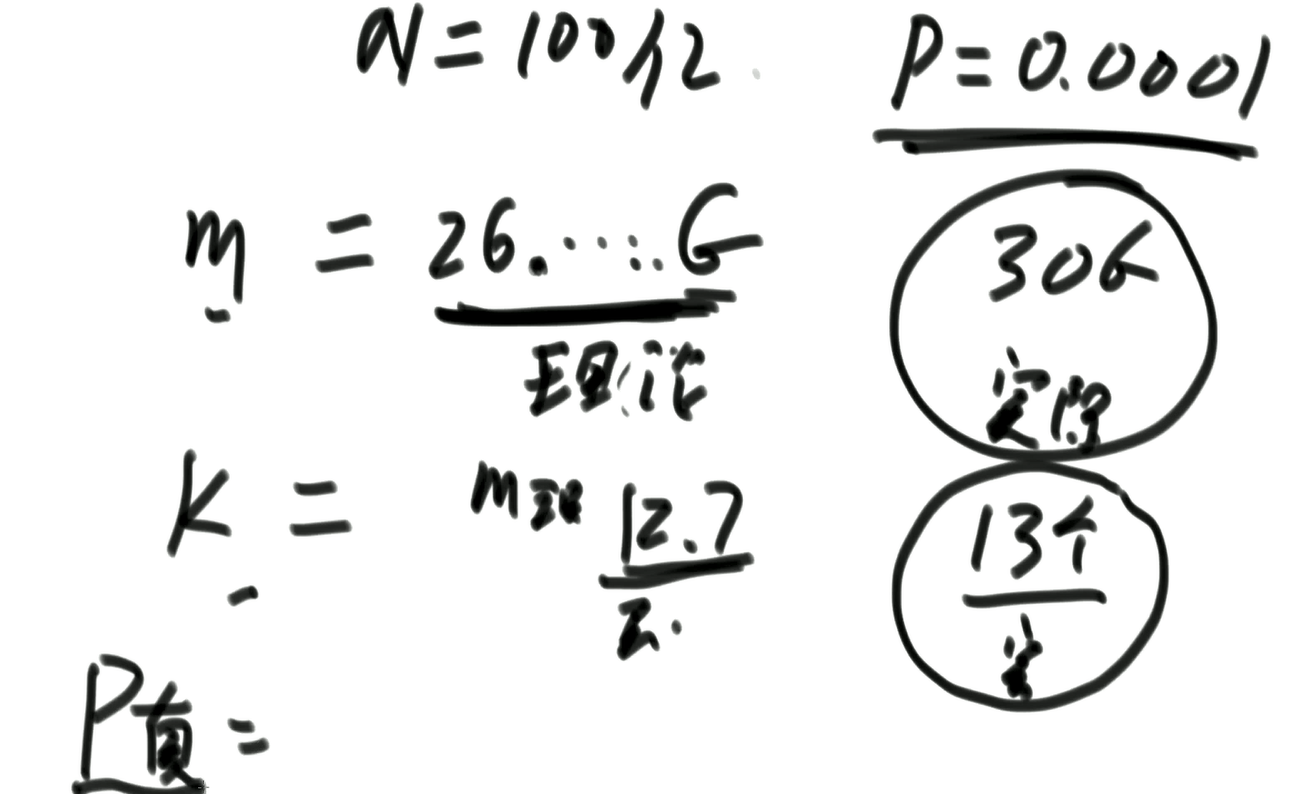 N = 100亿
P = 0.0001
m = 26.…… G
理论
30G
实际
K =
m 12.7
13个
实
P真 =